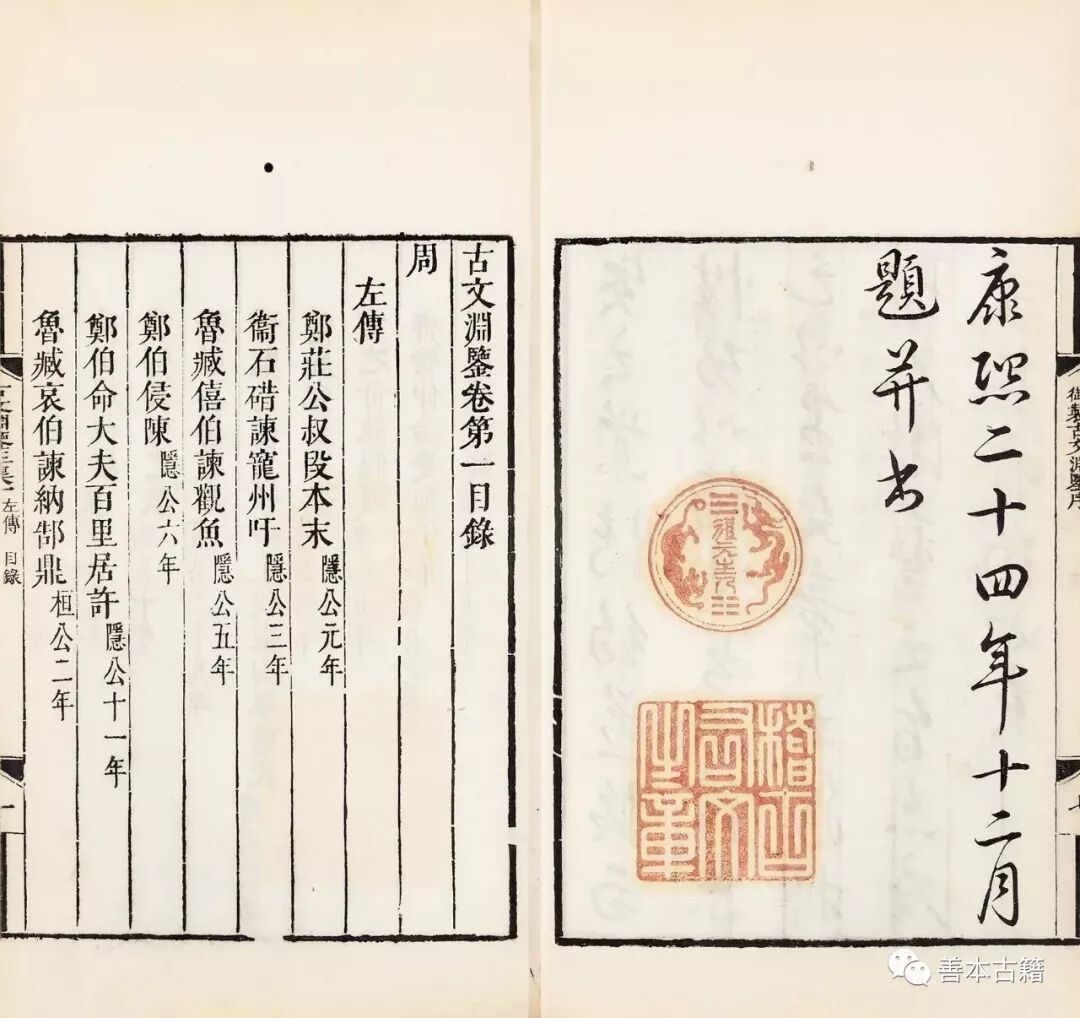 御製古文淵鑒序
康熙二十四年十二月
題并書
體元主人
稽古右文之章
古文淵鑒卷第一目錄
周
左傳
鄭莊公叔段本末 隱公元年
衞石碏諫寵州吁 隱公三年
魯臧僖伯諫觀魚 隱公五年
鄭伯侵陳 隱公六年
鄭伯命大夫百里居許 隱公十一年
魯臧哀伯諫納郜鼎 桓公二年
古文淵鑒正集 左傳 目錄 一
善本古籍